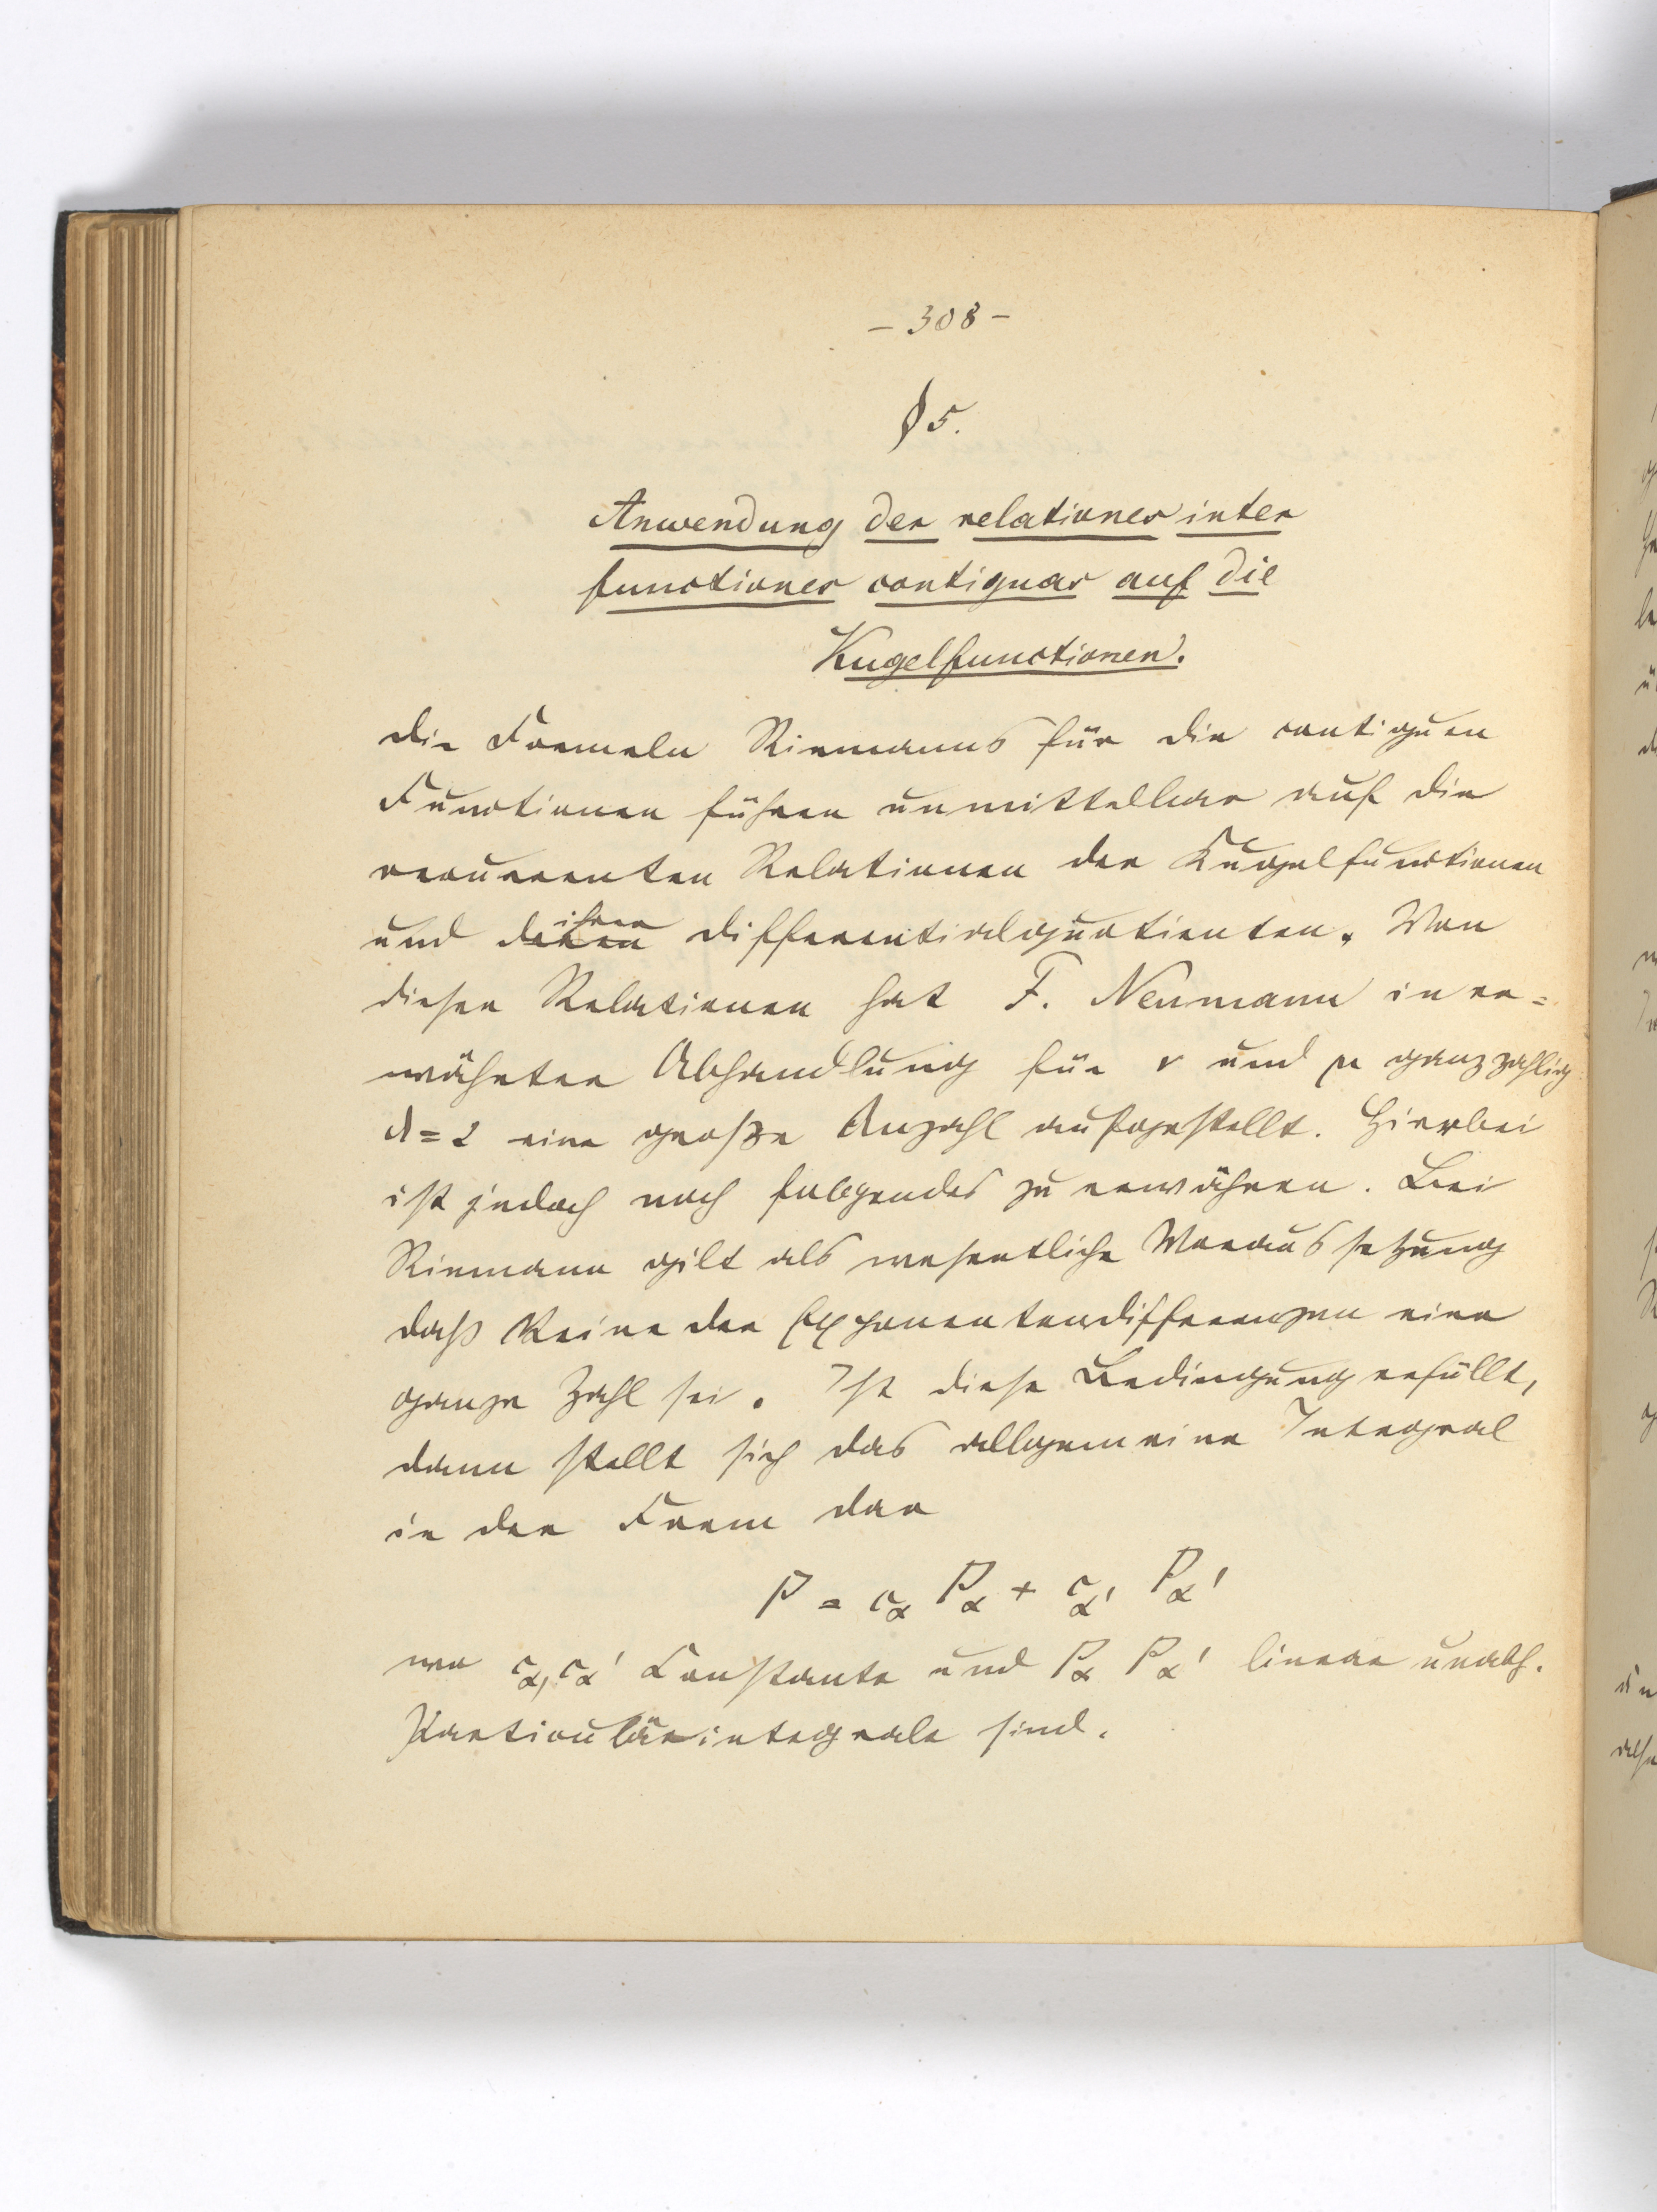 – 308 –
§ 5.
Anwendung der relationes inter
functiones contiguas auf die
Kugelfunctionen.
Die Formeln Riemanns für die contiguen
Functionen führen unmittelbar auf die
recurrenten Relationen der Kugelfunctionen
und deren ihren Differentialquotienten. Von
diesen Relationen hat F. Neumann in er=
wähnter Abhandlung für ν und μ ganzzahlig
λ = 2 eine große Anzahl aufgestellt. Hierbei
ist jedoch noch folgendes zu erwähnen. Bei
Riemann gilt als wesentliche Voraussetzung
daß keine der Exponentendifferenzen eine
ganze Zahl sei. Ist diese Bedingung erfüllt,
dann stellt sich das allgemeine Integral
in der Form dar
P = c_α P_α + c_α' P_α'
wo c_α, c_α' Constante und P_α P_α' linear unabh.
Particulärintegrale sind.